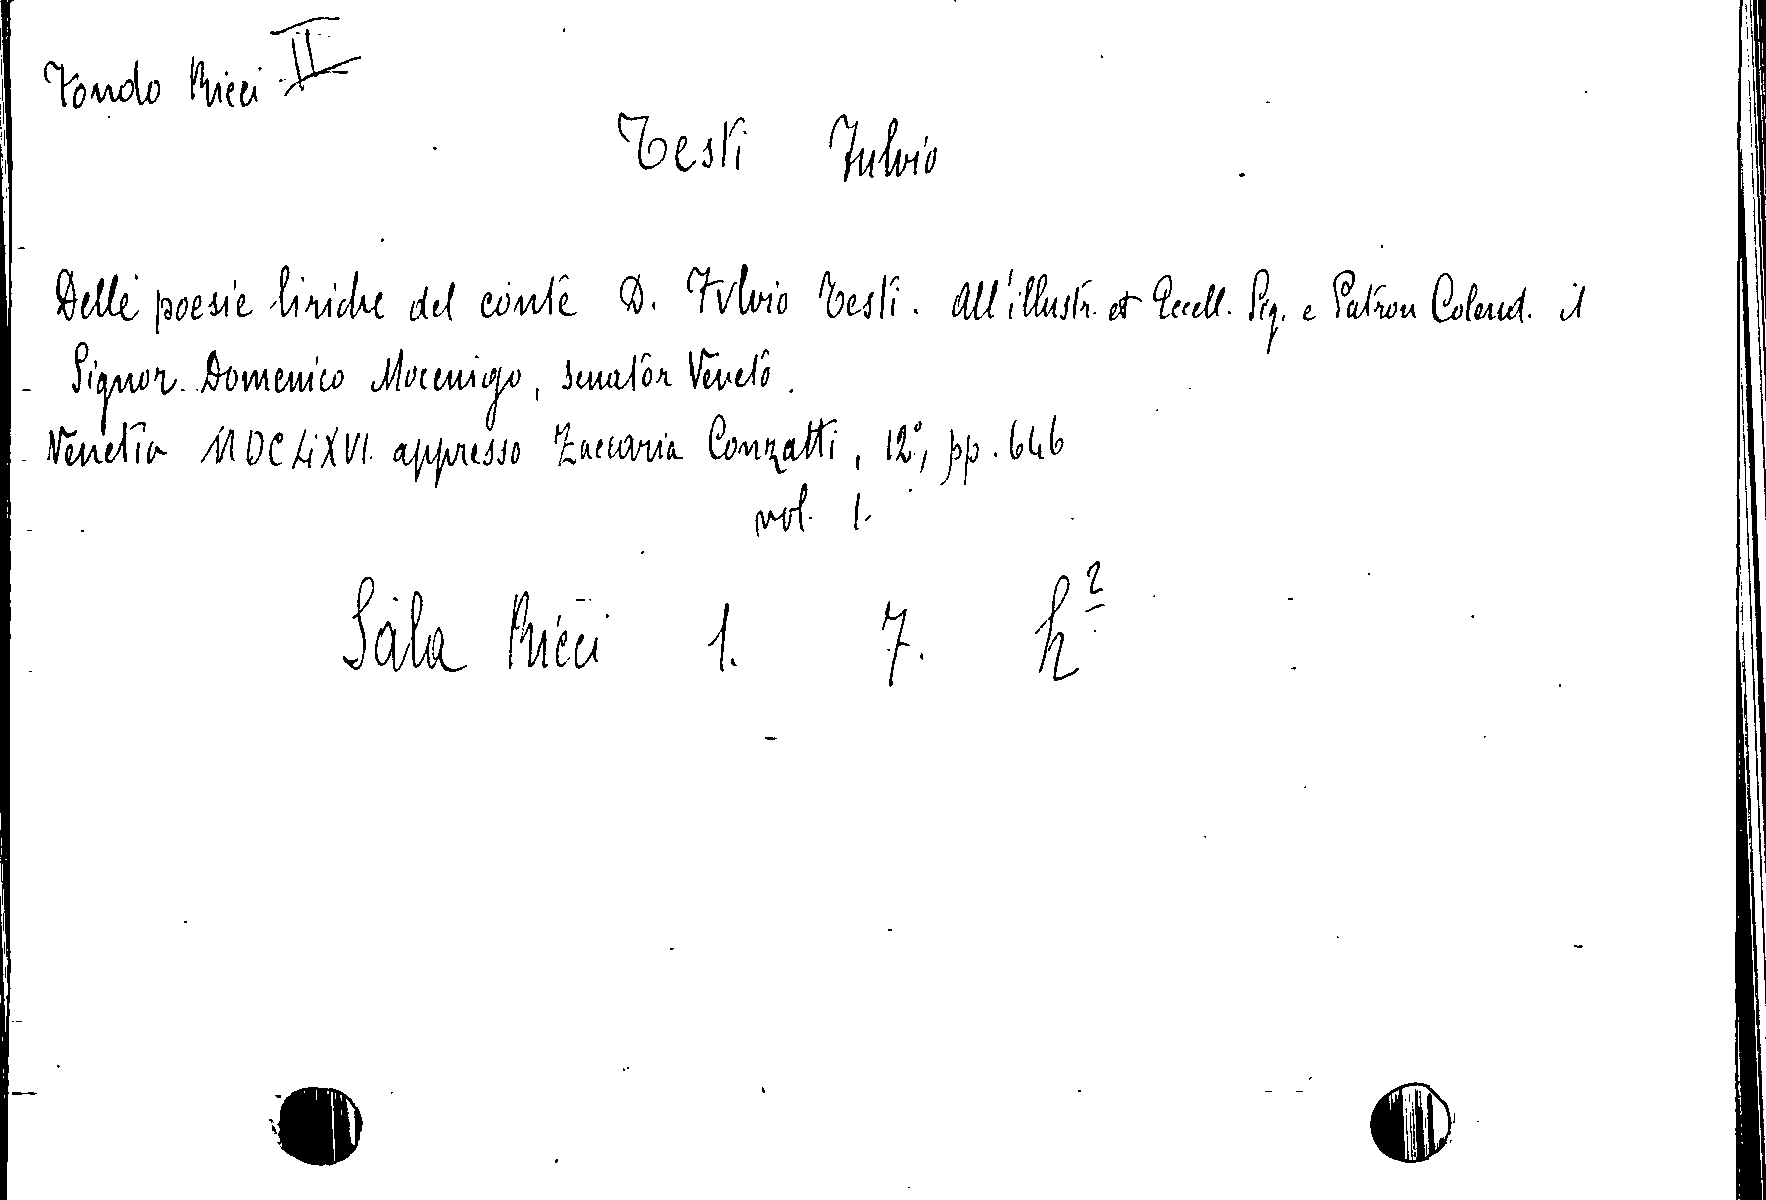 Fondo Ricci II
Testi Fulvio
Delle poesie liriche del conte D. Fulvio Testi. All'illustr. et Eccell. Sig. e Patron Colend. il
Signor Domenico Mocenigo, senator Veneto.
Venetia MDCLXVI. appresso Zaccaria Conzatti, 12°, pp. 646
vol. 1.
Sala Ricci 1. 7. h²